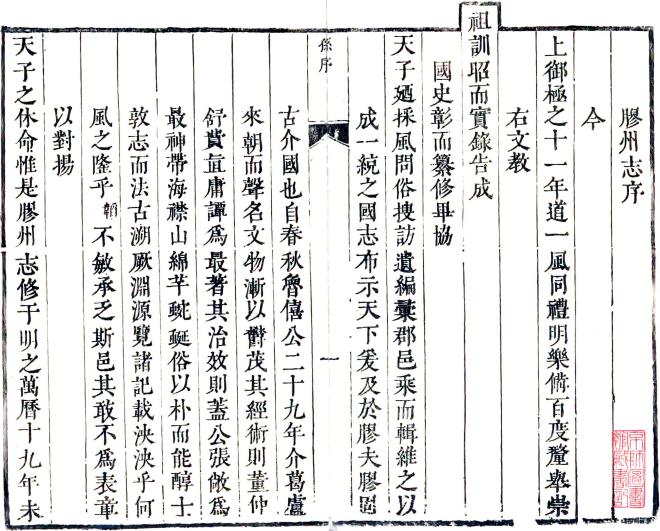 膠州志序
今
上御極之十一年道一風同禮明樂備百度釐舉崇
右文教
祖訓昭而實錄告成
國史彰而纂修畢協
天子廼採風問俗搜訪遺編彙郡邑乘而輯維之以
成一統之國志布示天下爰及於膠夫膠固
孫序
一
古介國也自春秋魯僖公二十九年介葛盧
來朝而聲名文物漸以鬱茂其經術則董仲
舒費直庸譚爲最著其治效則蓋公張敞爲
最神帶海襟山綿芊蜿蜒俗以朴而能醇士
敦志而法古溯厥淵源覽諸記載泱泱乎何
風之隆乎不敏承乏斯邑其敢不爲表章
以對揚
天子之休命惟是膠州志修于明之萬曆十九年未